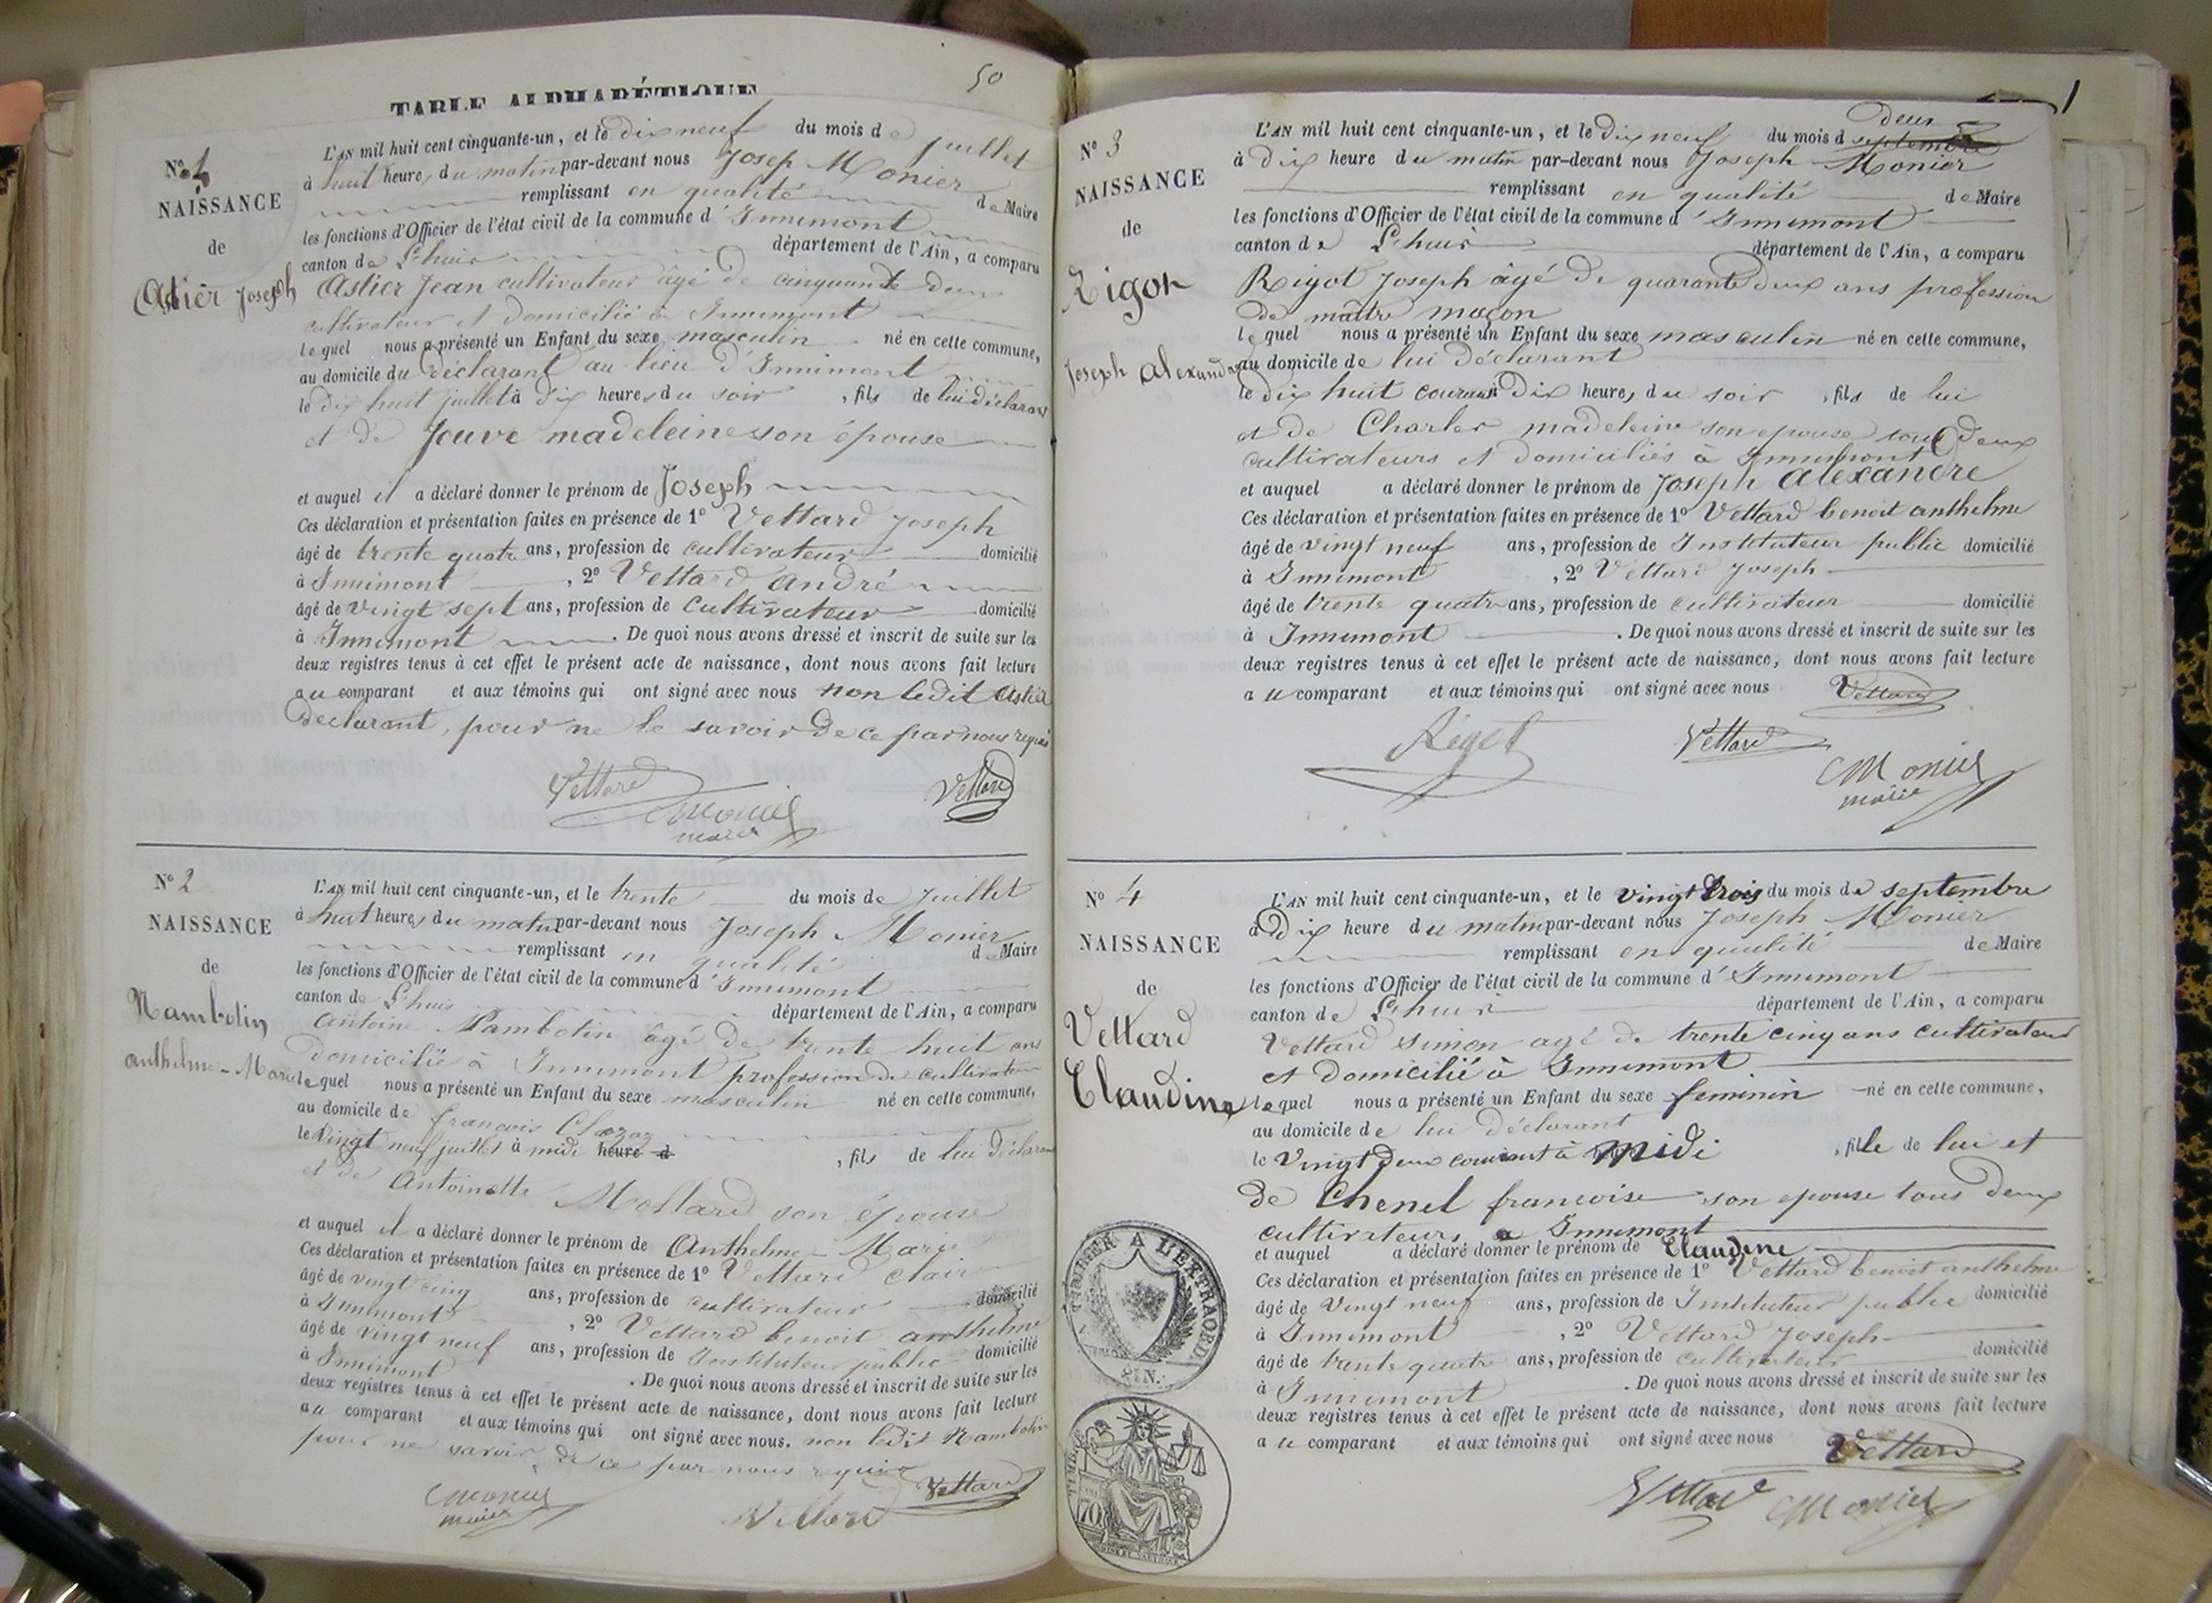 TABLE ALPHABÉTIQUE
50
NAISSANCE
de
Astier Joseph
L'AN mil huit cent cinquante-un, et le dix neuf du mois de juillet
à huit heures du matin par-devant nous Josep Monier
remplissant en qualité de Maire
les fonctions d'Officier de l'état civil de la commune d'Innimont
canton de Lhuis département de l'Ain, a comparu
Astier Jean cultivateur âgé de cinquante deux
cultivateur et domicilié à Innimont
lequel nous a présenté un Enfant du sexe masculin né en cette commune,
au domicile du déclarant au lieu d'Innimont
le dix huit juillet à dix heures du soir , fils de lui déclarant
et de Jouve madeleine son épouse
et auquel il a déclaré donner le prénom de Joseph
Ces déclaration et présentation faites en présence de 1º Vettard Joseph
âgé de trente quatre ans, profession de cultivateur domicilié
à Innimont , 2º Vettard André
âgé de vingt sept ans, profession de cultivateur domicilié
à Innimont . De quoi nous avons dressé et inscrit de suite sur les
deux registres tenus à cet effet le présent acte de naissance, dont nous avons fait lecture
au comparant et aux témoins qui ont signé avec nous non ledit Astier
déclarant, pour ne le savoir de ce par nous requis
Vettard Monier Vettard
maire
Nº 2
NAISSANCE
de
Nambotin
anthelme-Marie
L'AN mil huit cent cinquante-un, et le trente du mois de juillet
à huit heures du matin par-devant nous Joseph Monier
remplissant en qualité de Maire
les fonctions d'Officier de l'état civil de la commune d'Innimont
canton de Lhuis département de l'Ain, a comparu
Antoine Nambotin âgé de trente huit ans
domicilié à Innimont profession de cultivateur
lequel nous a présenté un Enfant du sexe masculin né en cette commune,
au domicile de francois
le vingt neuf juillet à midi heure d , fils de lui déclarant
et de Antoinette Mollard son épouse
et auquel il a déclaré donner le prénom de Anthelme-Marie
Ces déclaration et présentation faites en présence de 1º Vettard Clair
âgé de vingt cinq ans, profession de cultivateur domicilié
à Innimont , 2º Vettard benoit anthelme
âgé de vingt neuf ans, profession de Instituteur public domicilié
à Innimont . De quoi nous avons dressé et inscrit de suite sur les
deux registres tenus à cet effet le présent acte de naissance, dont nous avons fait lecture
au comparant et aux témoins qui ont signé avec nous. non ledit Nambotin
pour ne savoir, de ce par nous requis
Monier Vettard Vettard
maire
1
Nº 3
NAISSANCE
de
Rigot
Joseph alexandre
deux
L'AN mil huit cent cinquante-un, et le dix neuf du mois d septembre
à dix heure du matin par-devant nous Joseph Monier
remplissant en qualité de Maire
les fonctions d'Officier de l'état civil de la commune d'Innimont
canton de Lhuis département de l'Ain, a comparu
Rigot Joseph âgé de quarante deux ans profession
de maître maçon
lequel nous a présenté un Enfant du sexe masculin né en cette commune,
au domicile de lui déclarant
le dix huit courant dix heures du soir , fils de lui
et de Charler madeleine son epouse tous deux
cultivateurs et domiciliés à Innimont
et auquel a déclaré donner le prénom de Joseph alexandre
Ces déclaration et présentation faites en présence de 1º Vettard benoit anthelme
âgé de vingt neuf ans, profession de Instituteur public domicilié
à Innimont , 2º Vettard Joseph
âgé de trente quatre ans, profession de cultivateur domicilié
à Innimont . De quoi nous avons dressé et inscrit de suite sur les
deux registres tenus à cet effet le présent acte de naissance, dont nous avons fait lecture
au comparant et aux témoins qui ont signé avec nous Vettard
Rigot Vettard
Monier
maire
Nº 4
NAISSANCE
de
Vettard
Claudine
L'AN mil huit cent cinquante-un, et le vingt trois du mois de septembre
à dix heure du matin par-devant nous Joseph Monier
remplissant en qualité de Maire
les fonctions d'Officier de l'état civil de la commune d'Innimont
canton de Lhuis département de l'Ain, a comparu
Vettard Simon agé de trente cinq ans cultivateur
et domicilié à Innimont
lequel nous a présenté un Enfant du sexe feminin né en cette commune,
au domicile de lui déclarant
le vingt deux courant à midi , fille de lui et
de Chenel francoise son epouse tous deux
cultivateurs a Innimont
et auquel a déclaré donner le prénom de Claudine
Ces déclaration et présentation faites en présence de 1º Vettard benoit anthelme
âgé de vingt neuf ans, profession de Instituteur public domicilié
à Innimont , 2º Vettard Joseph
âgé de trente quatre ans, profession de cultivateur domicilié
à Innimont . De quoi nous avons dressé et inscrit de suite sur les
deux registres tenus à cet effet le présent acte de naissance, dont nous avons fait lecture
au comparant et aux témoins qui ont signé avec nous Vettard
Vettard Monier
TIMBRER A L'EXTRAORD.
TIMBRE
70